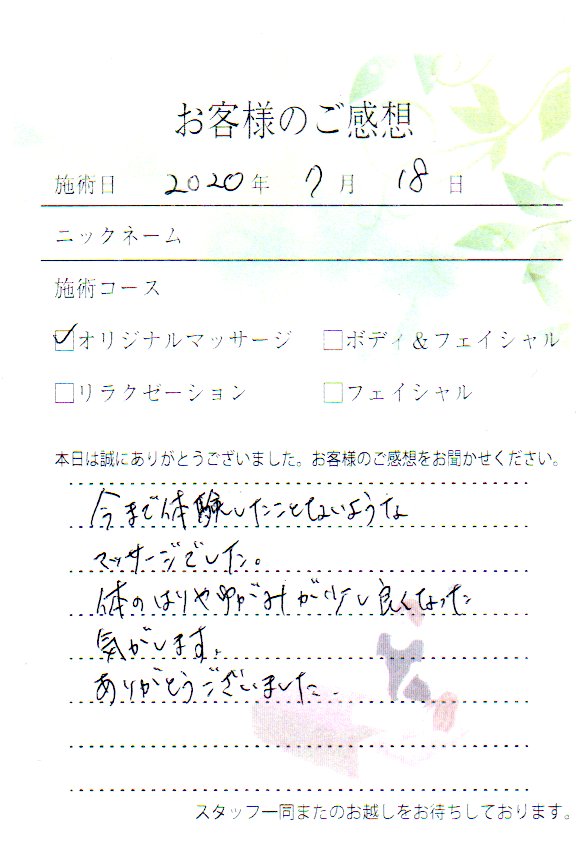 お客様のご感想
施術日 2020年 7月 18日
ニックネーム
施術コース
オリジナルマッサージ ボディ&フェイシャル
リラクゼーション フェイシャル
本日は誠にありがとうございました。お客様のご感想をお聞かせください。
今まで体験したことないような
マッサージでした。
体のはりやゆがみが少し良くなった
気がします。
ありがとうございました。
スタッフ一同またのお越しをお待ちしております。